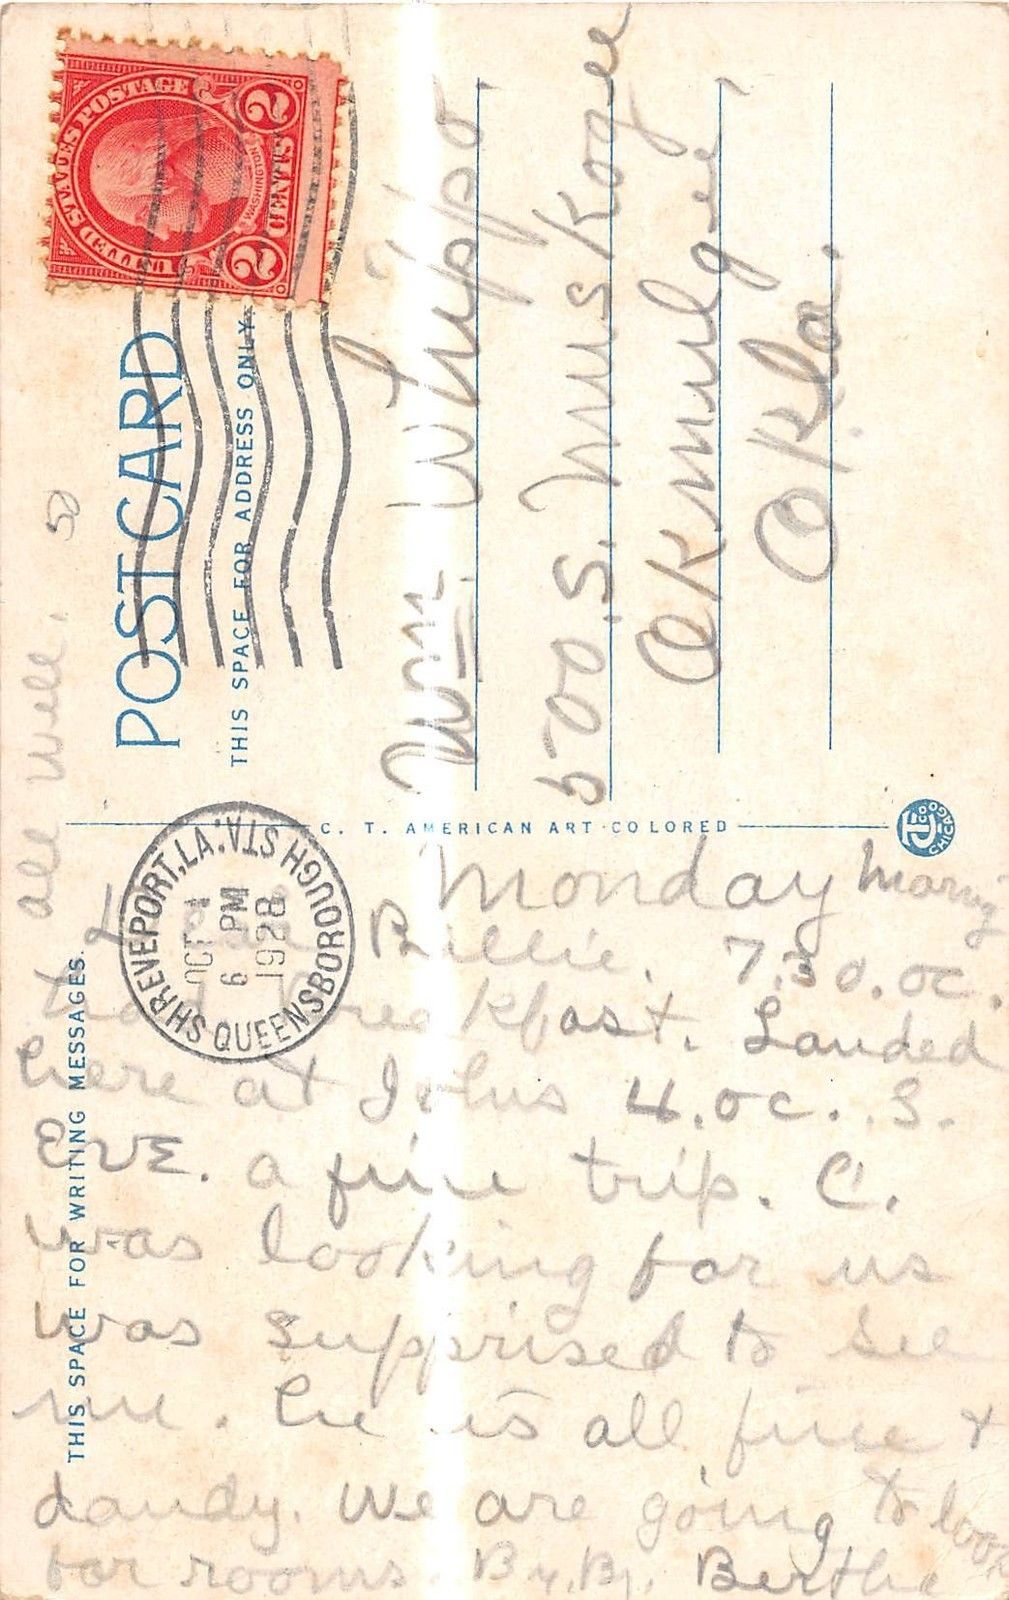 UNITED STATES POSTAGE
WASHINGTON
2 CENTS 2
POST CARD
THIS SPACE FOR ADDRESS ONLY
Wm. Whippo.
500 S. Muskogee
Okmulgee,
Okla.
C. T. AMERICAN ART COLORED
CHICAGO
SHREVEPORT, LA. QUEENSBOROUGH STA.
OCT 1
6 PM
1928
THIS SPACE FOR WRITING MESSAGES.
all well. 50
Monday
Dear Billie. 7.30. oc.
had breakfast. Landed
here at Johns 4.oc. S.
Eve. a fine trip. C.
was looking for us
was supprised to see
me. he is all fine +
dandy. we are going to look
for rooms. By. By. Bertha